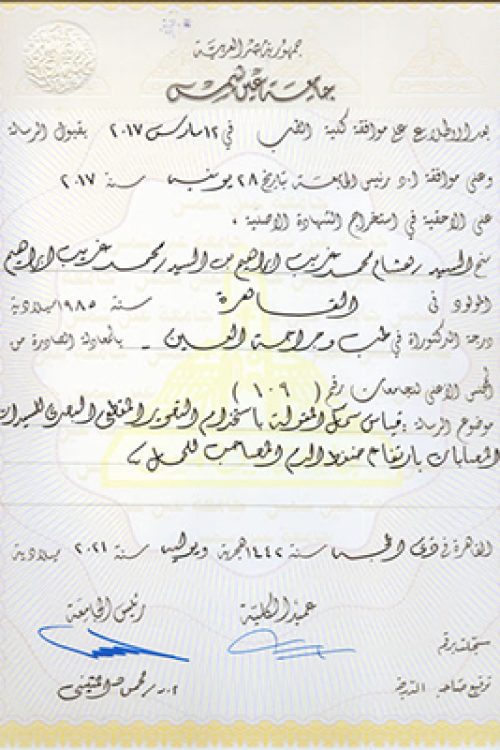 جمهورية مصر العربية
جامعة عين شمس
بعد الاطلاع على موافقة كلية الطب في ١٢ مارس ٢٠١٧ بقبول الرسالة
وعلى موافقة ا.د رئيس الجامعة بتاريخ ٢٨ يونيه سنة ٢٠١٧
على الأحقية في استخراج الشهادة الأصلية ،
منح السيد / هشام محمد غريب ابراهيم من السيد / محمد غريب ابراهيم
المولود في القاهرة سنة ١٩٨٥ ميلادية
درجة الدكتوراة في طب وجراحة العين - بالمعادلة الصادرة من
المجلس الأعلى للجامعات رقم ( ١٠٩ )
موضوع الرسالة : قياس سمك المقولة باستخدام التصوير المقطعى البصرى للسيدات
المصابات بارتفاع ضغط الدم المصاحب للحمل
القاهرة في ذى الحجة سنة ١٤٤٢ هجرية ويوليو سنة ٢٠٢١ ميلادية
عميد الكلية
رئيس الجامعة
سجلت برقم
توقيع صاحب الدرجة